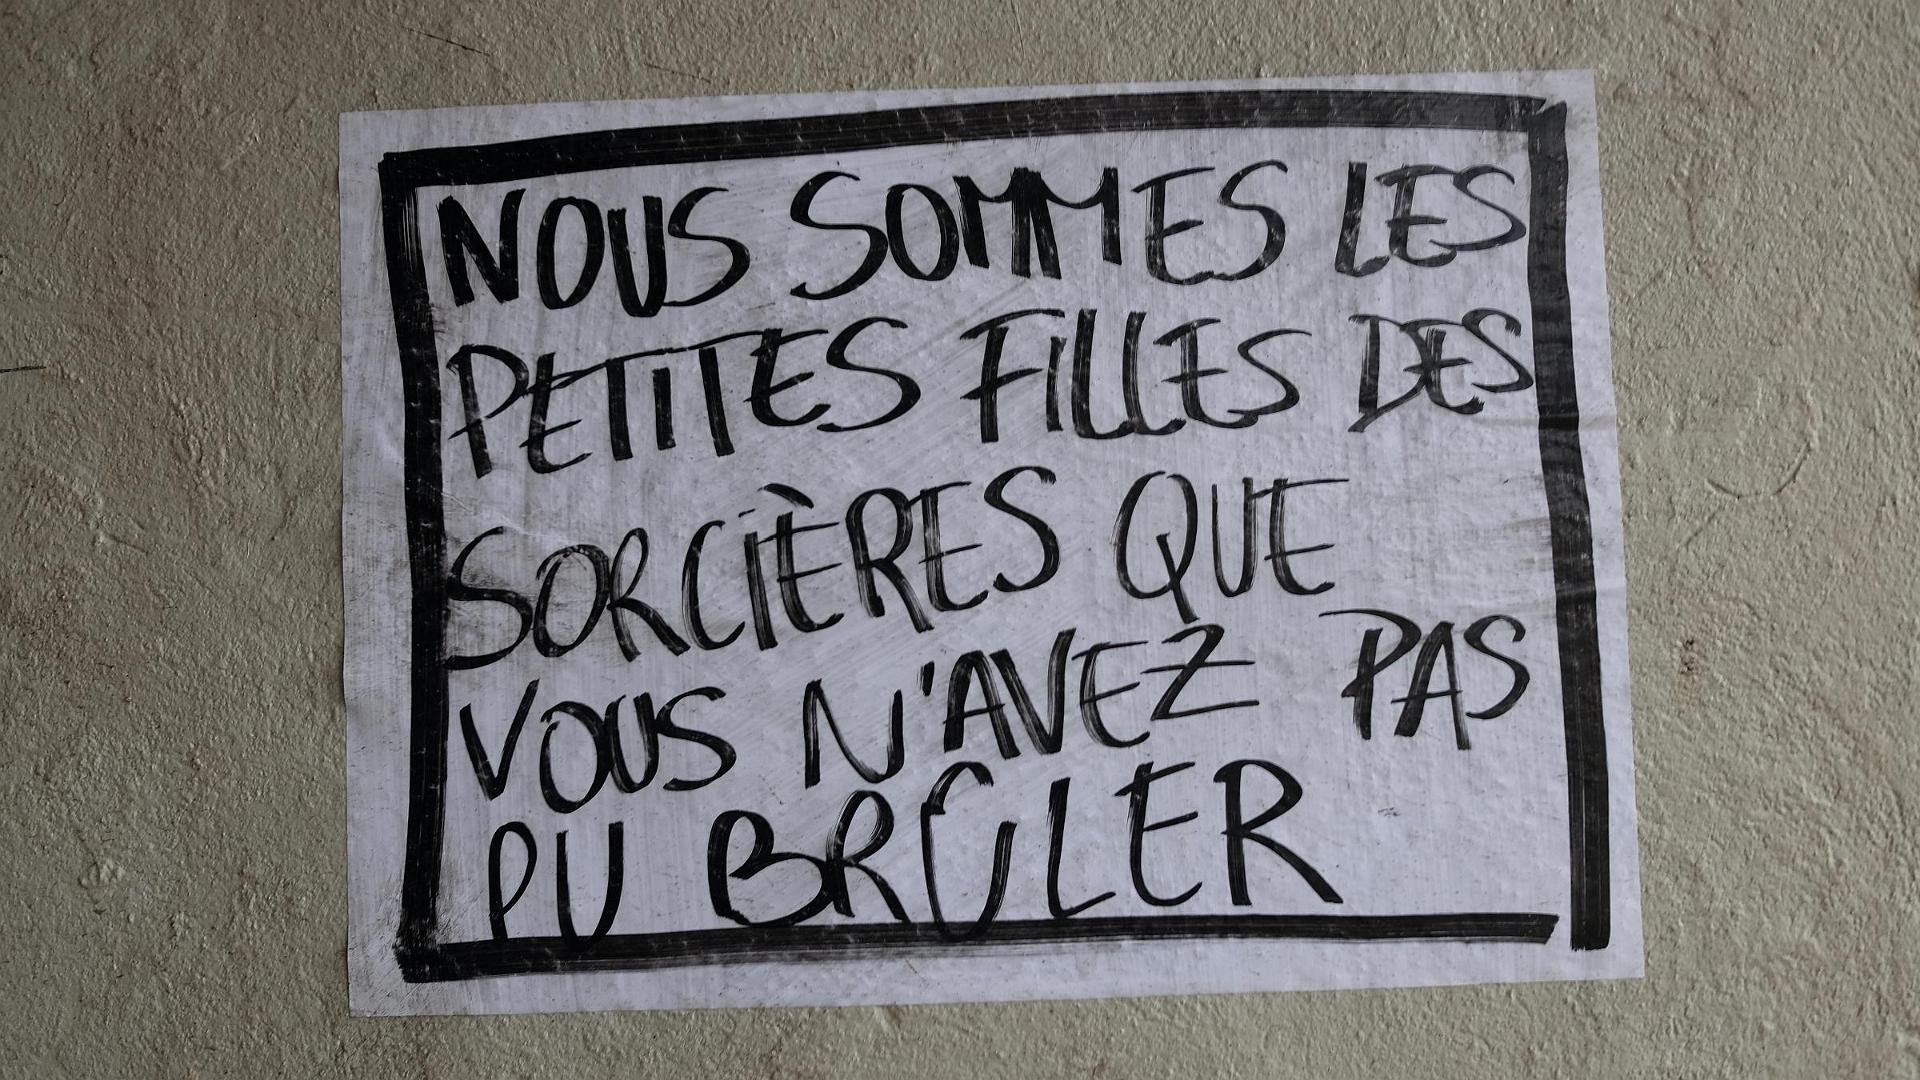 NOUS SOMMES LES
PETITES FILLES DES
SORCIÈRES QUE
VOUS N'AVEZ PAS
PU BRÛLER